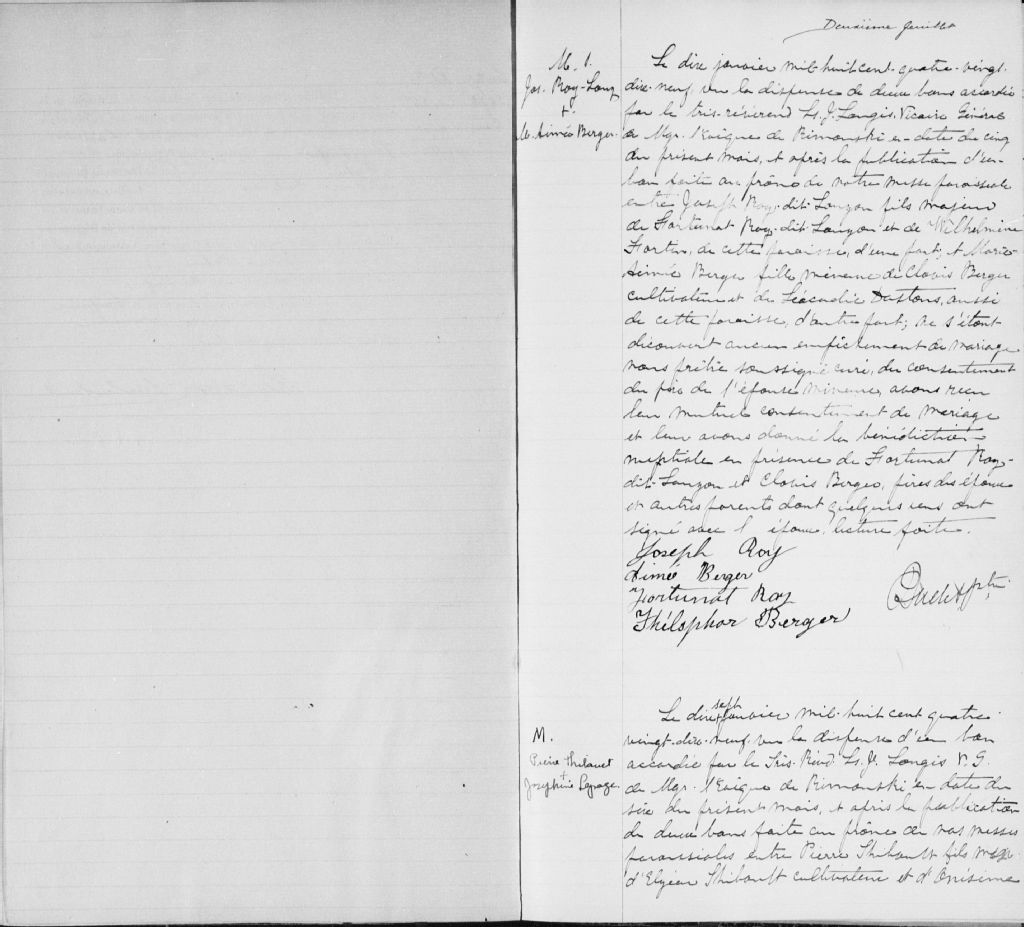 Deuxième feuillet
M. 1.
Jos. Roy-Lauz
+
M. Aimée Berger.
Le dix janvier mil-huit-cent-quatre-vingt-
dix-neuf, vu la dispense de deux bans accordée
par le très-révérend Ls. J. Langis, Vicaire Général
de Mgr. l'Evêque de Rimouski en date du cinq
du présent mois, et après la publication d'un
ban faite au prône de notre messe paroissiale
entre Joseph Roy-dit-Lauzon fils majeur
de Fortunat Roy-dit-Lauzon et de Wilhelmine
Fortin, de cette paroisse, d'une part, et Marie-
Aimée Berger fille mineure de Clovis Berger
cultivateur et de Léocadie Dastous, aussi
de cette paroisse, d'autre part; ne s'étant
découvert aucun empêchement de mariage
nous prêtre soussigné curé, du consentement
du père de l'épouse mineure, avons reçu
leur mutuel consentement de mariage
et leur avons donné la bénédiction
nuptiale en présence de Fortunat Roy-
dit-Lauzon et Clovis Berger, pères des époux
et autres parents dont quelques uns ont
signé avec l'époux, lecture faite.
Joseph Roy
Aimée Berger
Fortunat Roy
Thélisphor Berger
ptre
M.
Pierre Thibault
+
Josephine Lepage.
Le dix sept janvier mil-huit cent quatre
vingt-dix-neuf, vu la dispense d'un ban
accordée par le Très-Révd Ls. J. Langis V. G.
de Mgr. l'Evêque de Rimouski en date du
six du présent mois, et après la publication
de deux bans faite au prône de nos messes
paroissiales entre Pierre Thibault fils maj.
d'Elzéar Thibault cultivateur et d'Onésime